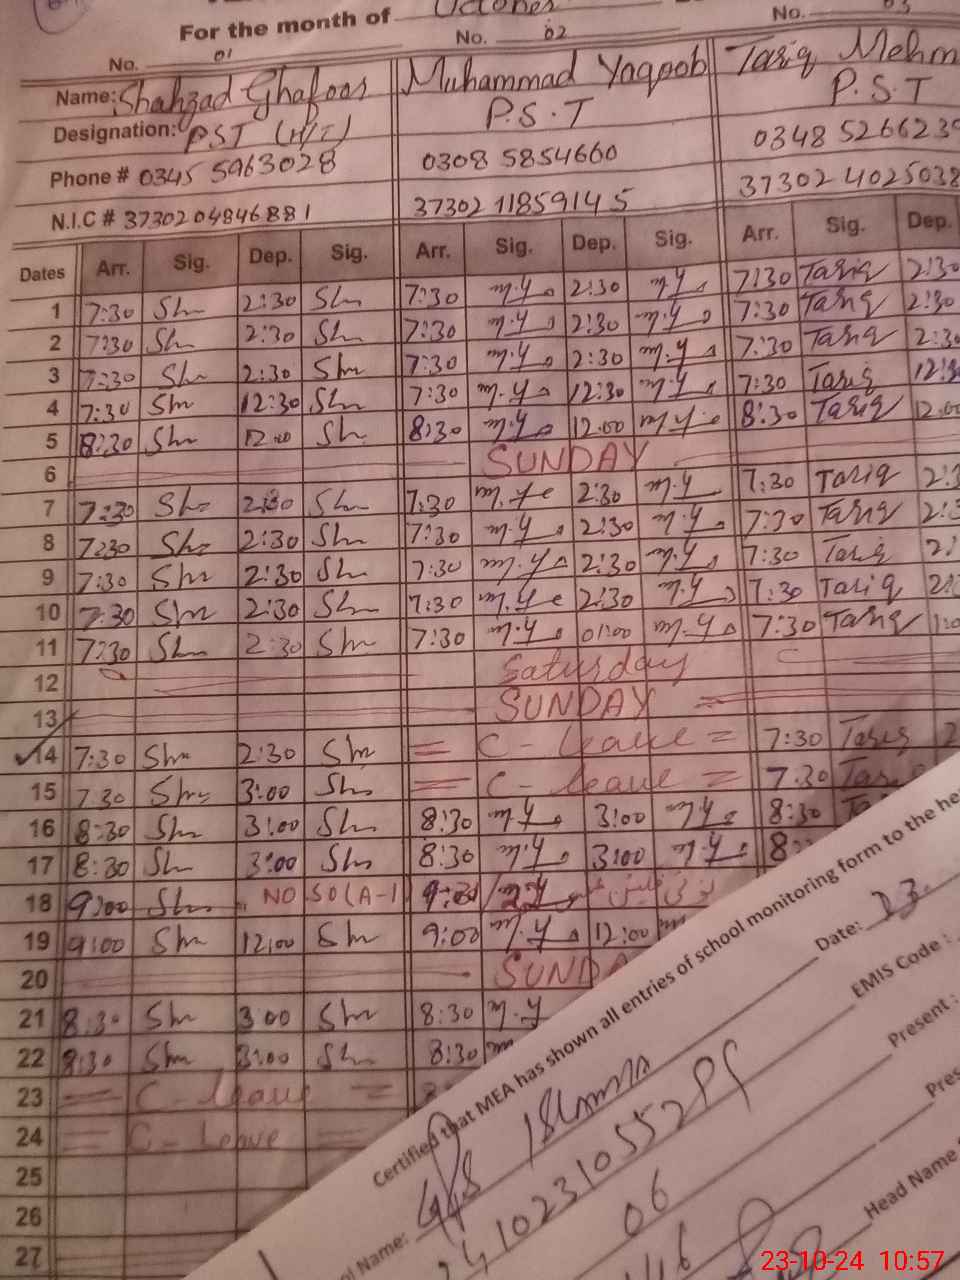 For the month of October
No. 01 No. 02 No. 03
Name: Shahzad Ghafoor Muhammad Yaqoob Tariq Mehm
Designation: PST (H/T) P.S.T P.S.T
Phone # 0345 5963028 0308 5854660 0348 526623
N.I.C # 3730204846881 37302 11859145 37302 4025038
Dates Arr. Sig. Dep. Sig. Arr. Sig. Dep. Sig. Arr. Sig. Dep.
1 7:30 Sh 2:30 Sh 7:30 m.y 2:30 m.y 7:30 Tariq 2:30
2 7:30 Sh 2:30 Sh 7:30 m.y 2:30 m.y 7:30 Tariq 2:30
3 7:30 Sh 2:30 Sh 7:30 m.y 2:30 m.y 7:30 Tariq 2:3
4 7:30 Sh 12:30 Sh 7:30 m.y 12:30 m.y 7:30 Tariq 12:3
5 8:30 Sh 12:00 Sh 8:30 m.y 12:00 m.y 8:30 Tariq 12:00
6 SUNDAY
7 7:30 Sh 2:30 Sh 7:30 m.y 2:30 m.y 7:30 Tariq 2:3
8 7:30 Sh 2:30 Sh 7:30 m.y 2:30 m.y 7:30 Tariq 2:3
9 7:30 Sh 2:30 Sh 7:30 m.y 2:30 m.y 7:30 Tariq 2:
10 7:30 Sh 2:30 Sh 7:30 m.y 2:30 m.y 7:30 Tariq 2:
11 7:30 Sh 2:30 Sh 7:30 m.y 01:00 m.y 7:30 Tariq 1:0
12 Saturday
13 SUNDAY
14 7:30 Sh 2:30 Sh = C - leave = 7:30 Tariq 2
15 7:30 Sh 3:00 Sh = C - leave = 7:30 Tar
16 8:30 Sh 3:00 Sh 8:30 m.y 3:00 m.y 8:30 Ta
17 8:30 Sh 3:00 Sh 8:30 m.y 3:00 m.y 8:
18 9:00 Sh NO SO(A-I) 9:30 m.y
19 9:00 Sh 12:00 Sh 9:00 m.y 12:00 m
20 SUNDA
21 8:30 Sh 3:00 Sh 8:30 m.y
22 8:30 Sh 3:00 Sh 8:30 m
23 = C - leave =
24 = C - Leave =
25
26
27
Certified that MEA has shown all entries of school monitoring form to the he
Date: 23
ol Name: EMIS Code :
Present :
06 Pres
Head Name
23-10-24 10:57